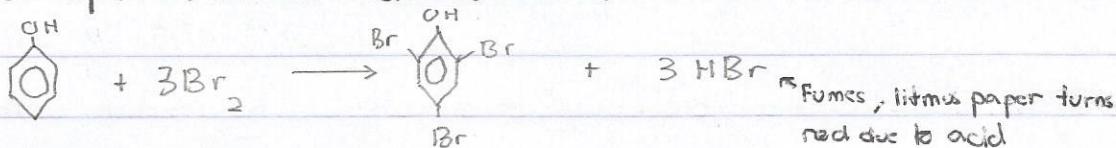 OH OH
Br Br
+ 3Br₂ ⟶ + 3 HBr Fumes, litmus paper turns
Br red due to acid